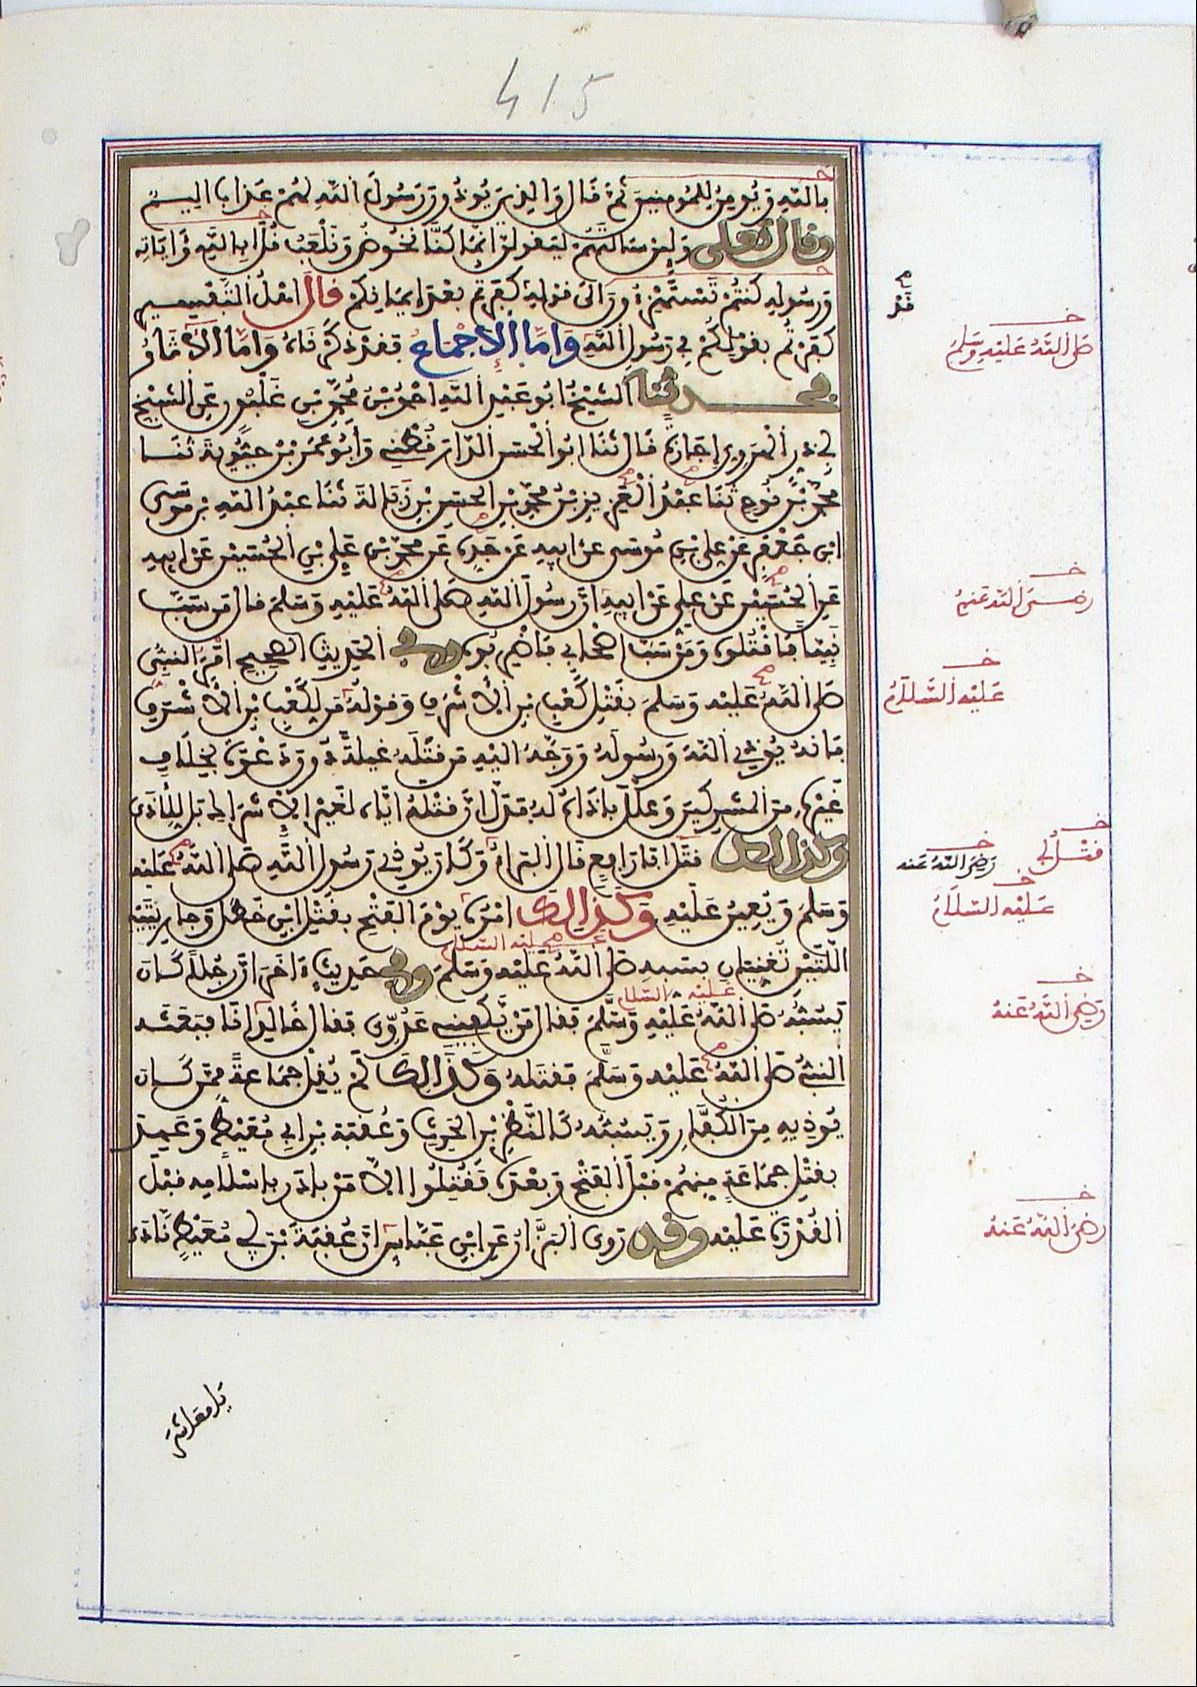 415
بالله ويومن للمومنين ثم قال والذين يوذون رسول الله لهم عذاب اليم
وقال تعلى ولين سالتهم ليقولن انما كنا نخوض ونلعب قل ابالله وءاياته
ورسوله كنتم تستهزءون الى قوله كفرتم بعد ايمانكم قال اهل التفسير
كفرتم بقولكم في رسول الله واما الاجماع فقد ذكرناه واما الاثار
فحدثنا الشيخ ابو عبد الله احمد بن محمد بن غلبون عن الشيخ
ابي ذر الهروي اجازة قال ثنا ابو الحسن الدارقطني وابو عمر بن حيوية ثنا
محمد بن نوح ثنا عبد العزيز بن محمد بن الحسن بن زبالة ثنا عبد الله بن موسى
ابن جعفر عن علي بن موسى عن ابيه عن جده عن محمد بن علي بن الحسين عن ابيه
عن الحسين بن علي عن ابيه ان رسول الله صلى الله عليه وسلم قال من سب
نبيا فاقتلوه ومن سب اصحابي فاضربوه وفي الحديث الصحيح امر النبي
صلى الله عليه وسلم بقتل كعب بن الاشرف وقوله من لكعب بن الاشرف
فانه يوذي الله ورسوله ووجه اليه من قتله غيلة دون دعوة بخلاف
غيره من المشركين وعلل باذاه له فدل ان قتله اياه لغير الاشراك بل للاذى
وكذالك قتل ابا رافع قال البراء وكان يوذي رسول الله صلى الله عليه
وسلم ويعين عليه وكذالك امره يوم الفتح بقتل ابن خطل وجاريتيه
اللتين تغنيان بسبه صلى الله عليه وسلم وفي حديث ءاخر ان رجلا كان
يسبه صلى الله عليه وسلم فقال من يكفيني عدوي فقال خالد انا فبعثه
النبي صلى الله عليه وسلم فقتله وكذالك لم يقل جماعة ممن كان
يوذيه من الكفار ويسبه كالنضر بن الحرث وعقبة بن ابي معيط وعهد
بقتل جماعة منهم قبل الفتح وبعده فقتلوا الا من بادر باسلامه قبل
القدرة عليه وقد روى البزار عن ابن عباس ان عقبة بن ابي معيط نادى
صلى الله عليه وسلم
رضي الله عنهم
عليه السلام
قتل ابي
رضي الله عنه
عليه السلام
عليه السلام
عليه السلام
رضي الله عنه
رضي الله عنه
يا معاشر